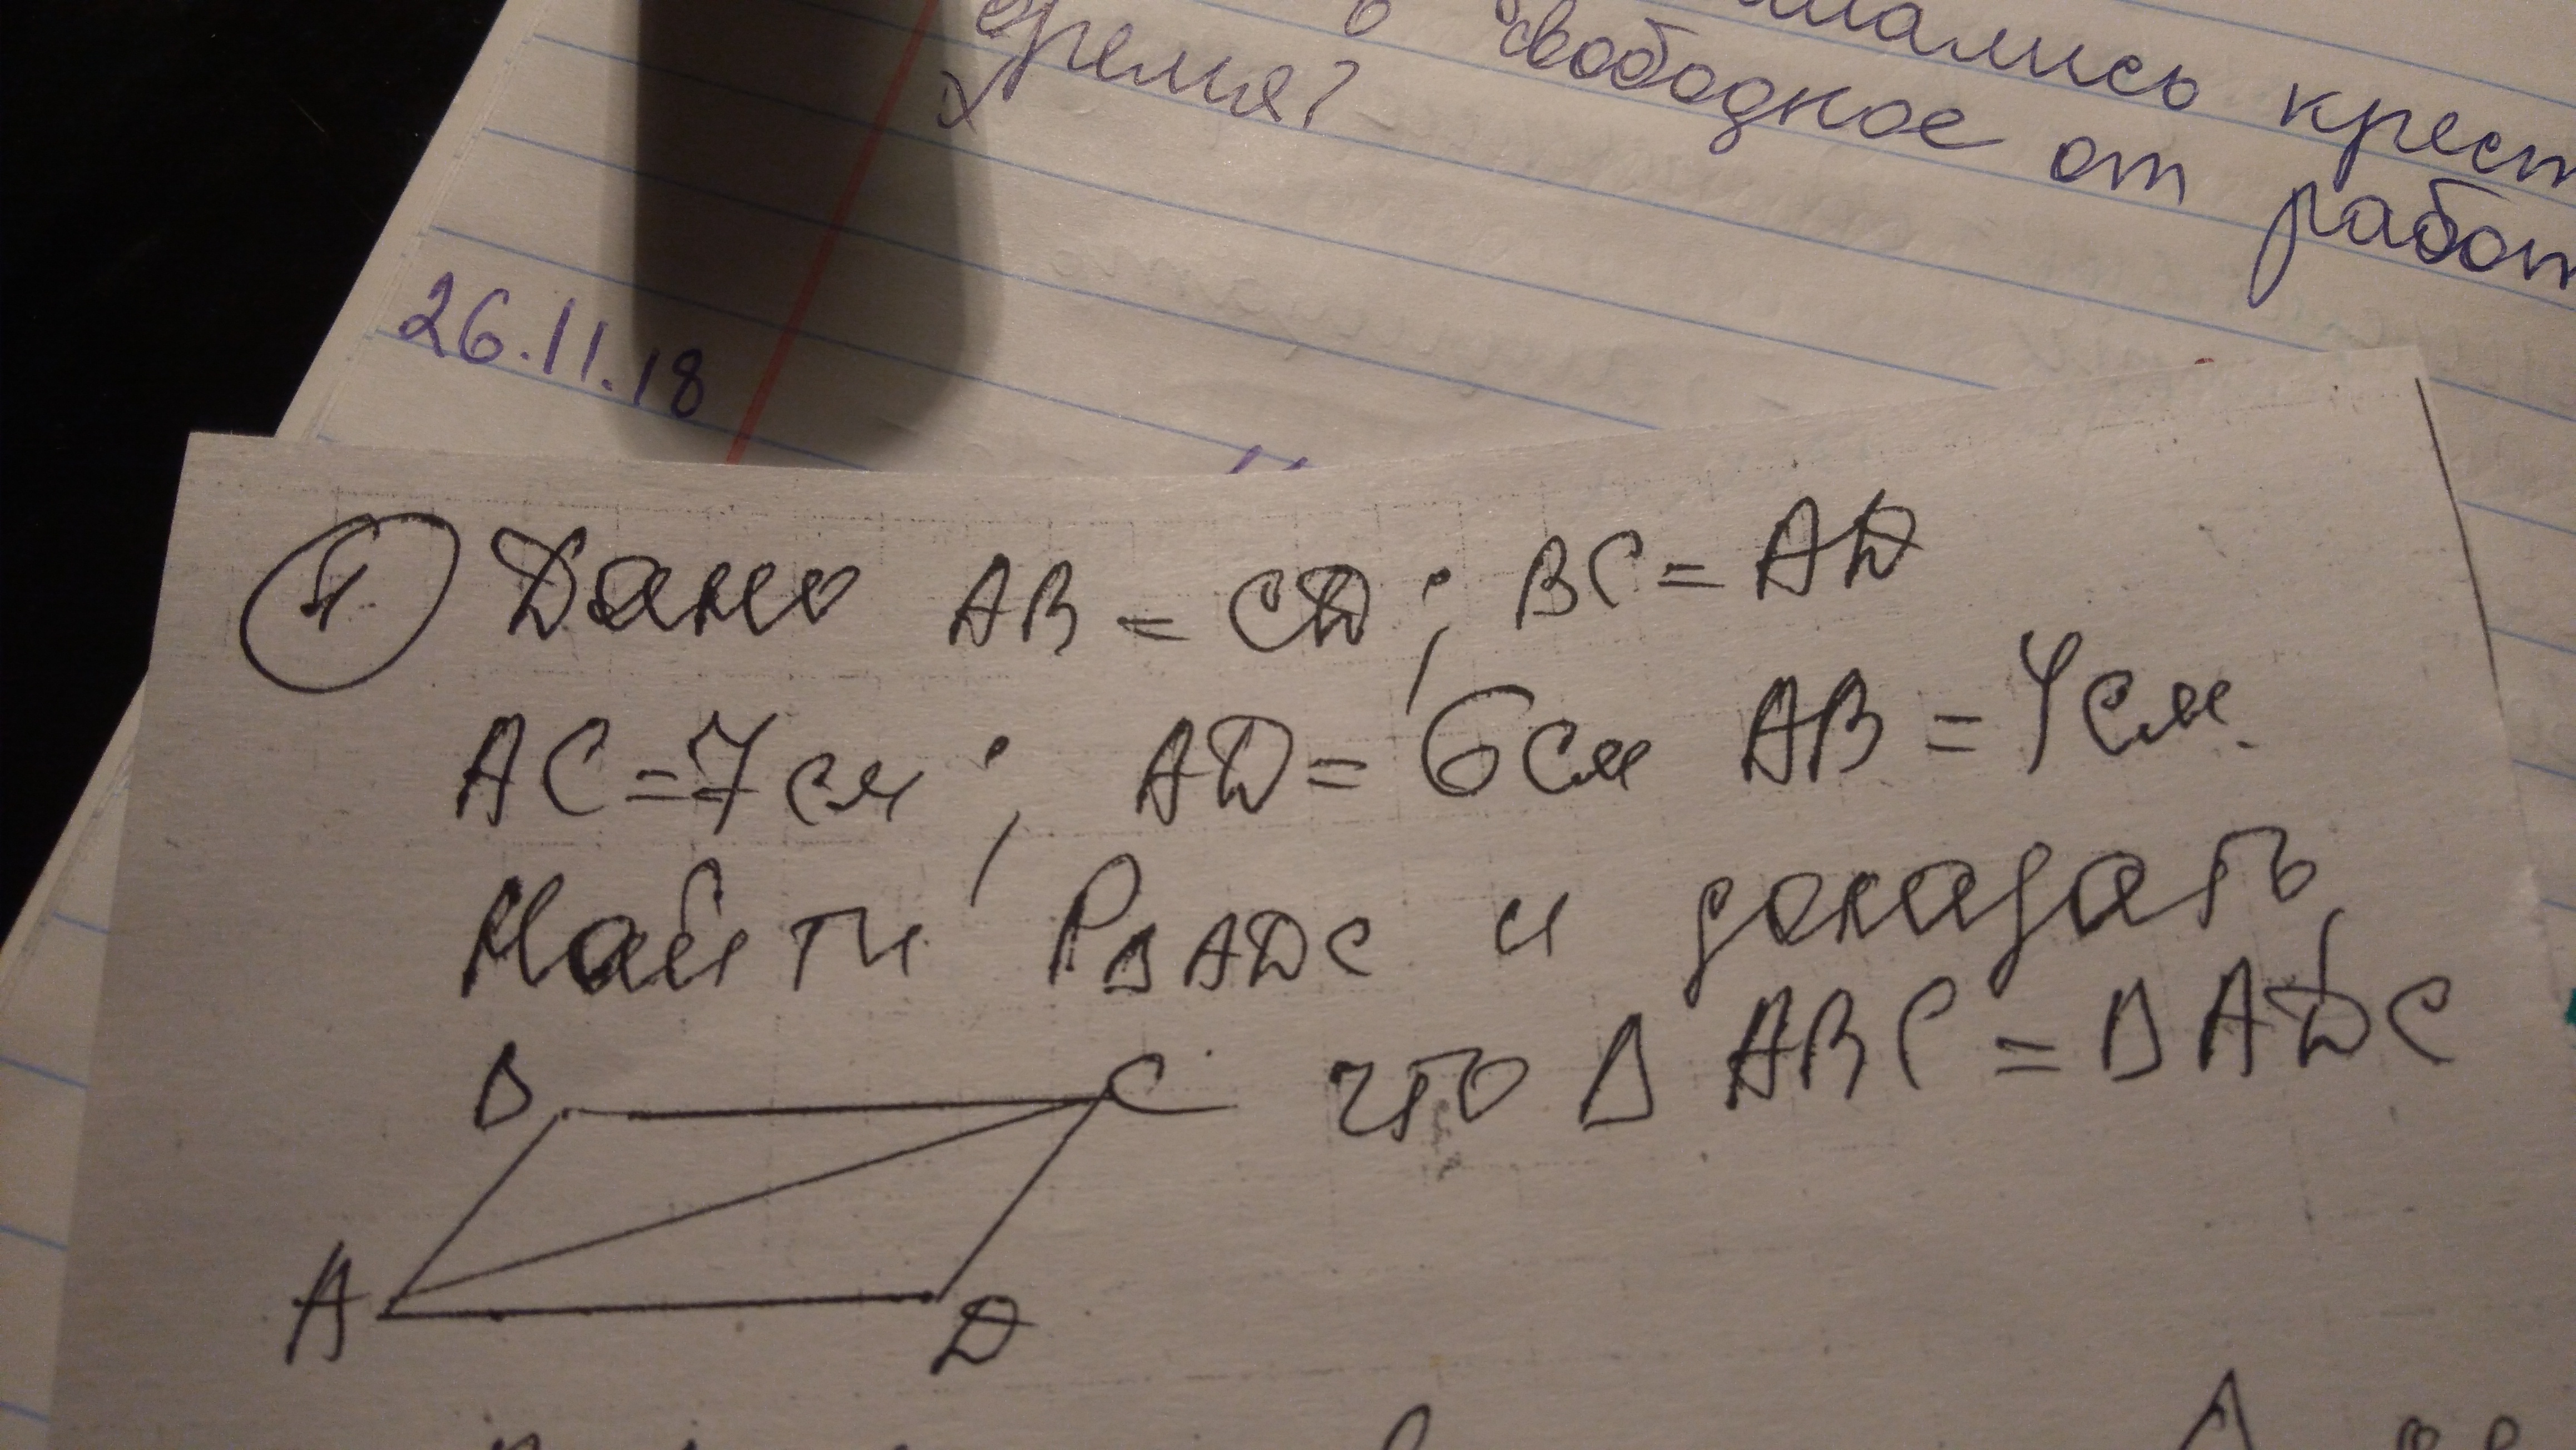 свободное от работ
время?
26.11.18
Дано AB = CD; BC = AD
AC = 7 см; AD = 6 см AB = 4 см.
Найти PBADC и доказать,
что Δ ABC = Δ ADC
B C
A D